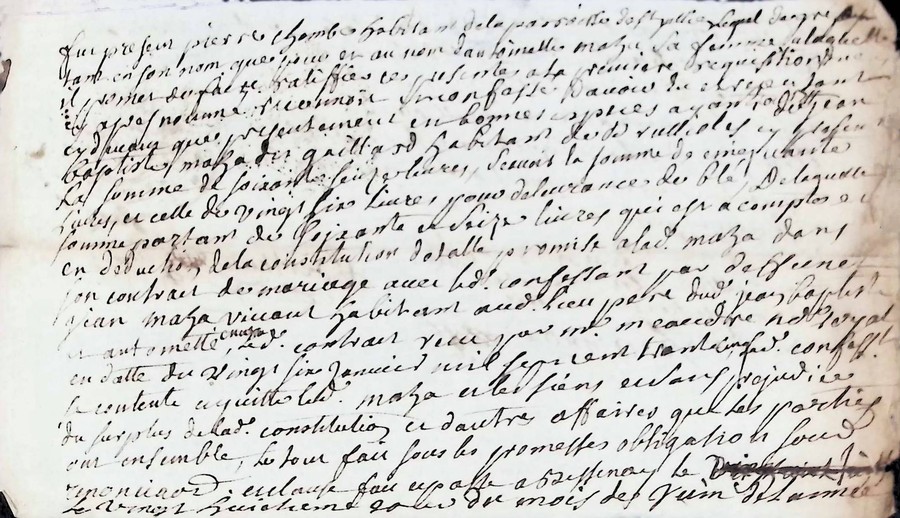 fut present pierre chambe habitant de la parroisse de st lequel de gré
tant en son nom que pour et au nom d'antoinette maza sa femme a laquelle
il promet de faire ratiffier ces presentes a la premiere requisition
apres nommé reconnoit et confesse d'avoir eu et
cy devant que presentement en bonnes especes ayant de jean
baptiste maza dit gaillard habitant de vrullioles cy present
la somme de soixante seize livres, scavoir la somme de cinquante
livres, et celle de vingt six livres pour delivrance de blé, De laquelle
somme partant de soixante et seize livres qui est a compte et
en deduction de la constitution dotalle promise a lad. maza dans
son contrat de mariage avec led. confessant par deffunct
jean maza vivant habitant aud. lieu pere dud. jean baptiste
et antoinette maza, led. contrat receu par me meandre nore royal
en datte du vingt six janvier mil sept cent trente cinq led. confesst.
se contente et quitte led. maza et les siens et sans prejudice
du surplus de lad. constitution et d'autres affaires que les parties
ont ensemble, le tout fait sous les promesses obligation soub
renonciaon et clause fait et passé a le
le vingt huictieme jour du mois de juin de l'année